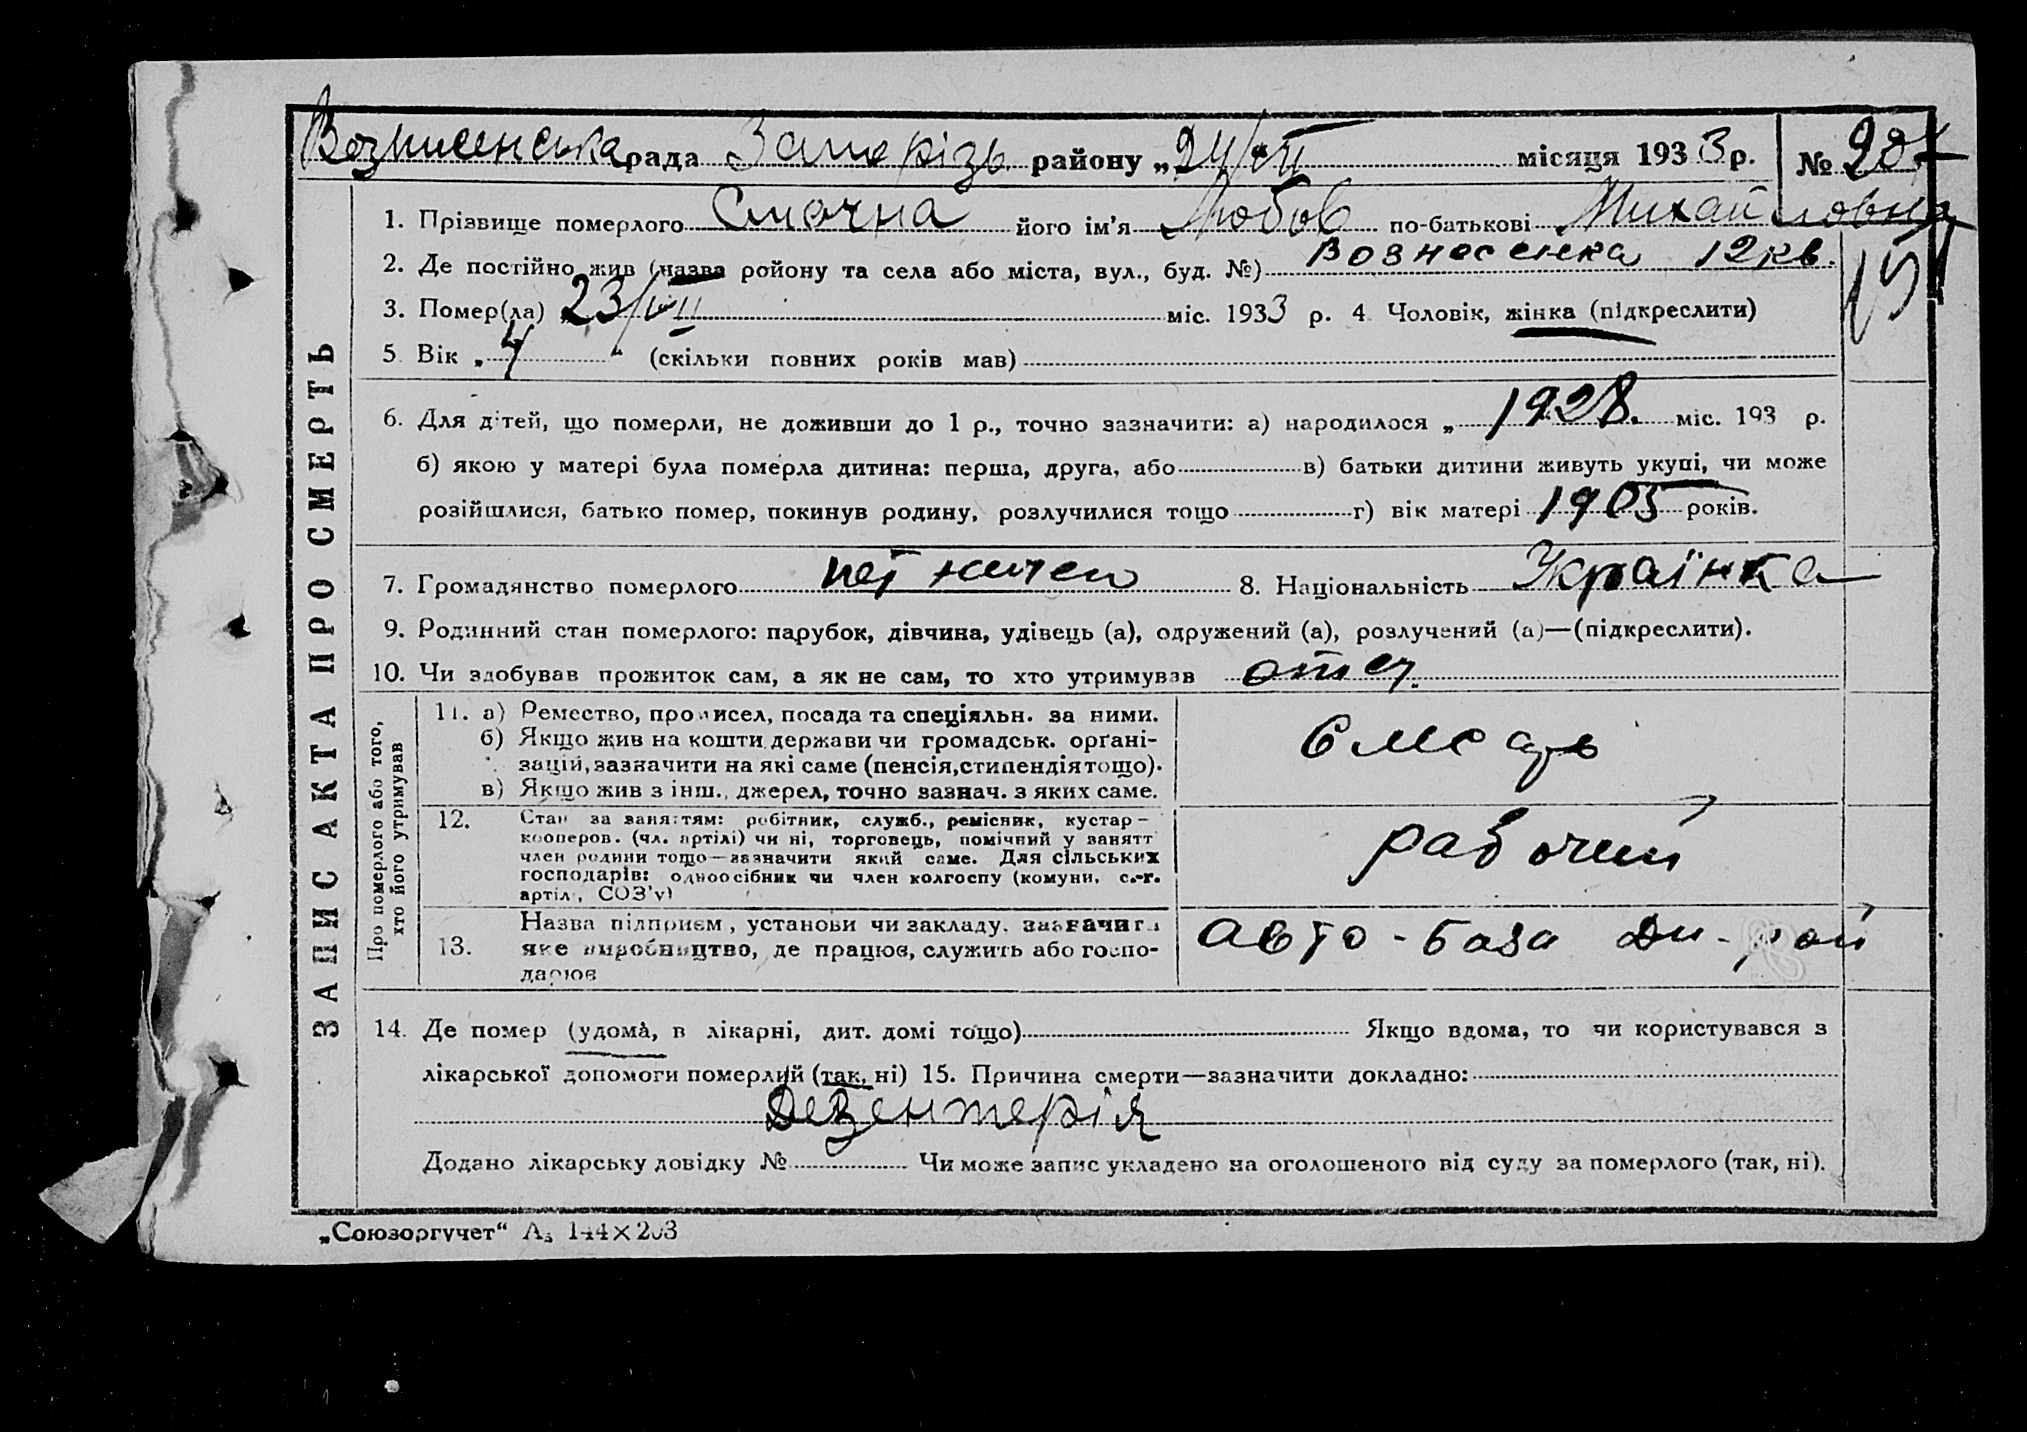 Вознисенська рада Запорізь району „24/VII місяця 1933 р. № 207
1. Прізвище померлого Смачна його ім'я Любов по-батькові Михайловна
2. Де постійно жив (назва ройону та села або міста, вул., буд. №) Вознесенка 12 кв.
3. Помер(ла) 23/VII міс. 1933 р. 4 Чоловік, жінка (підкреслити)
5. Вік „ 4 “ (скільки повних років мав)
6. Для дітей, що померли, не доживши до 1 р., точно зазначити: а) народилося „ 1928. міс. 193 р.
б) якою у матері була померла дитина: перша, друга, або в) батьки дитини живуть укупі, чи може
розійшлися, батько помер, покинув родину, розлучилися тощо г) вік матері 1905 років.
7. Громадянство померлого 8. Національність Українка
9. Родинний стан померлого: парубок, дівчина, удівець (а), одружений (а), розлучений (а)—(підкреслити).
10. Чи здобував прожиток сам, а як не сам, то хто утримував отец.
ЗАПИС АКТА ПРО СМЕРТЬ
Про померлого або того,
хто його утримував
11. а) Ремество, промисел, посада та спеціяльн. за ними.
б) Якщо жив на кошти держави чи громадськ. орґані-
зацій, зазначити на які саме (пенсія, стипендія тощо).
в) Якщо жив з інш., джерел, точно зазнач. з яких саме.
12. Стан за заняттям: робітник, служб., ремісник, кустар—
кооперов. (чл. артілі) чи ні, торговець, помічний у занятт
член родини тощо—зазначити який саме. Для сільських
господарів: одноосібник чи член колгоспу (комуни, с.-г.
артілі, СОЗ'у)
рабочий
13. Назва підприєм., установи чи закладу. зазначити
яке виробництво, де працює, служить або госпо-
дарює
Авто-база
14. Де помер (удома, в лікарні, дит. домі тощо) Якщо вдома, то чи користувався з
лікарської допомоги померлий (так, ні) 15. Причина смерти—зазначити докладно:
Дезентерія
Додано лікарську довідку № Чи може запис укладено на оголошеного від суду за померлого (так, ні).
„Союзоргучет“ А₅ 144×203